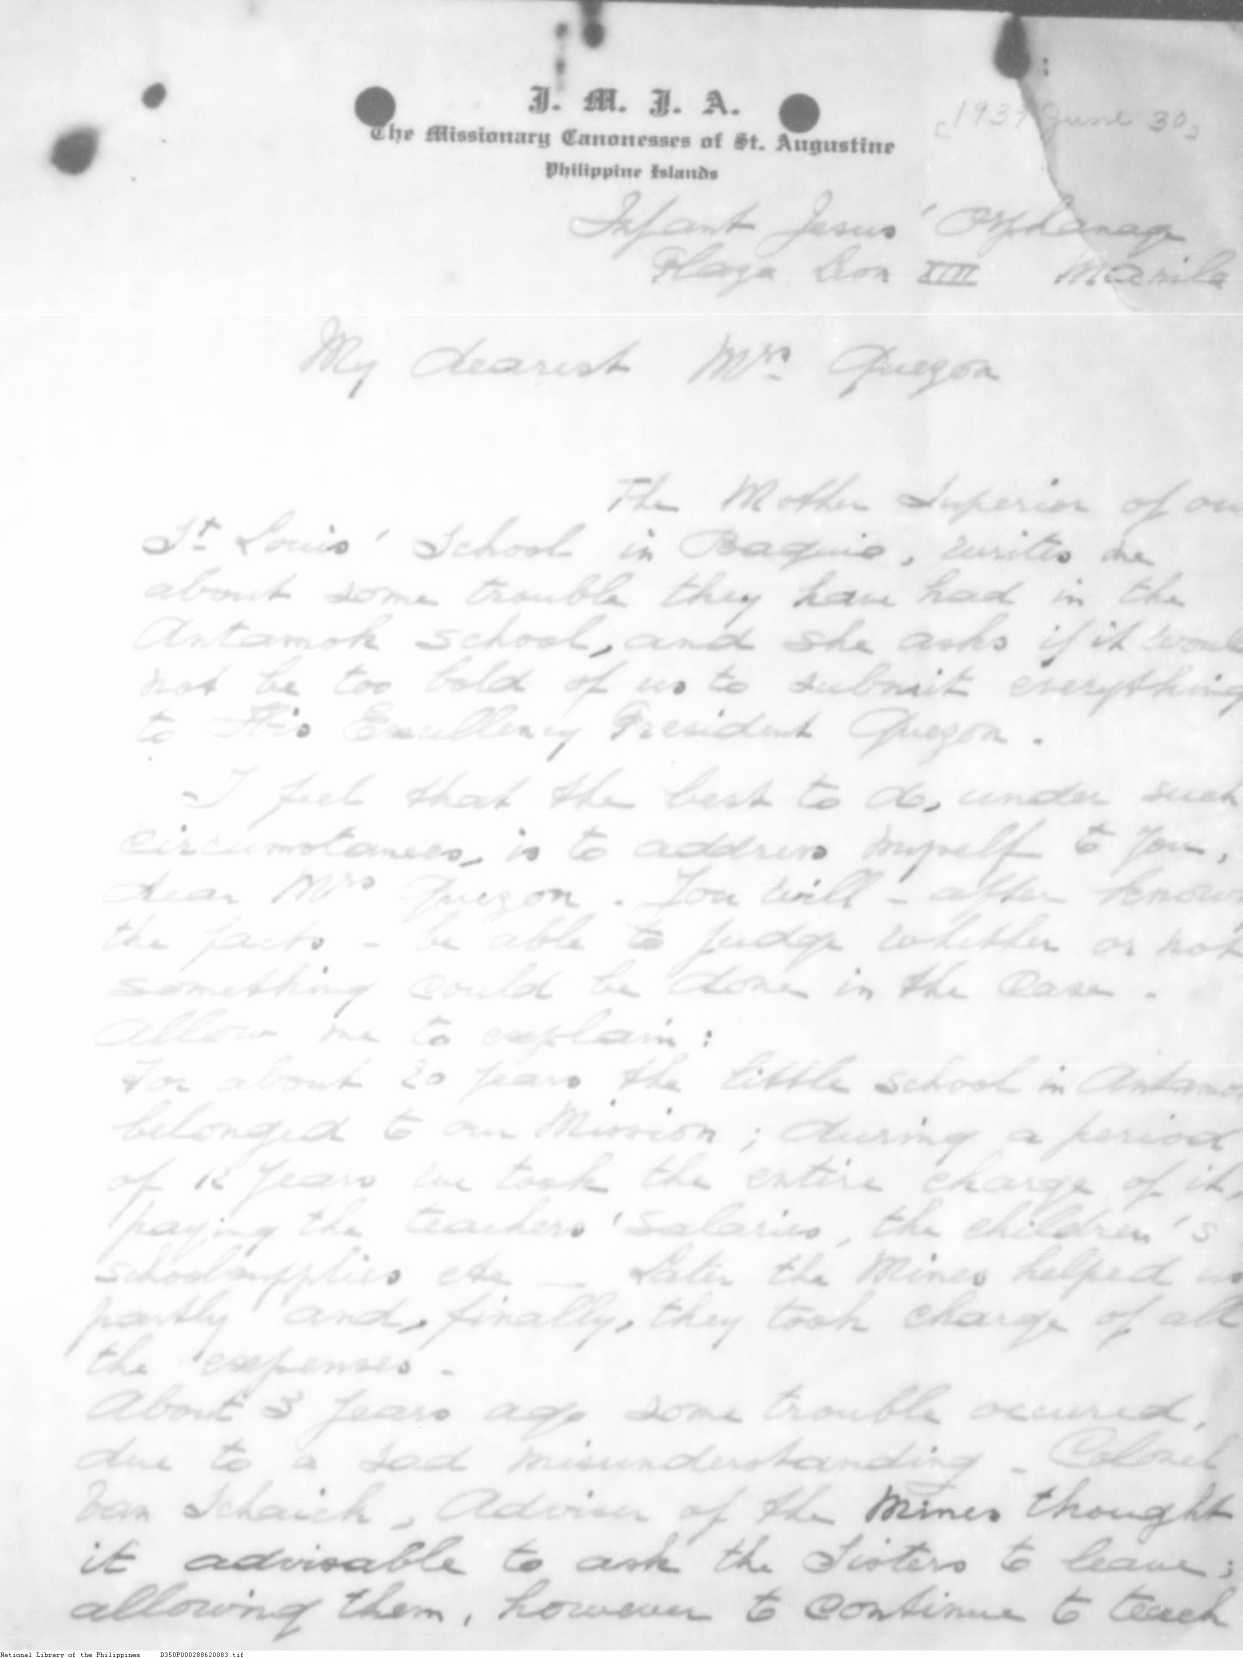 J. M. J. A.
The Missionary Canonesses of St. Augustine
Philippine Islands
[1937 June 30]
Infant Jesus' Orphanage
Plaza Leon XIII Manila
My dearest Mrs Quezon
The Mother Superior of our
St Louis' School in Baguio, writes me
about some trouble they have had in the
Antamok school, and she asks if it would
not be too bold of us to submit everything
to His Excellency President Quezon.
- I feel that the best to do, under such
circumstances, is to address myself to You,
dear Mrs Quezon. You will - after knowing
the facts - be able to judge whether or not
something could be done in the case.
Allow me to explain:
For about 20 years the little school in Antamok
belonged to our Mission; during a period
of 12 years we took the entire charge of it,
paying the teachers' salaries, the children's
schoolsupplies etc - Later the Mines helped us
partly and, finally, they took charge of all
the expenses -
About 3 years ago some trouble occured,
due to a sad misunderstanding - Colonel
Van Schaick, Adviser of the Mines thought
it advisable to ask the Sisters to leave;
allowing them, however to continue to teach
National Library of the Philippines D350P000288620883.tif